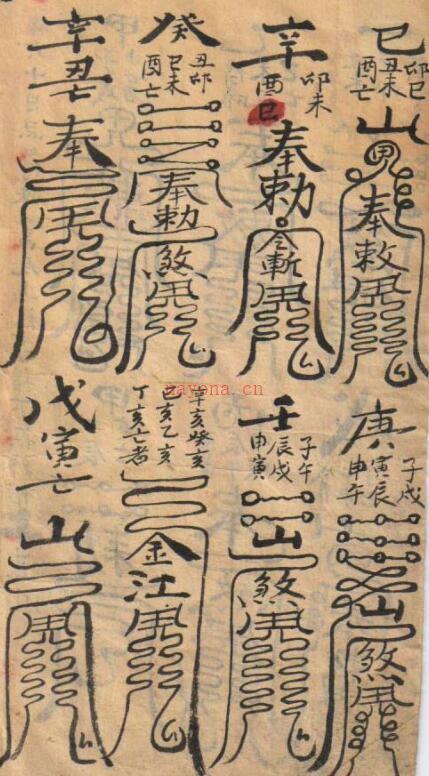 已
卯巳
丑未
酉亡
山
奉敕
辛
卯未
酉巳
奉勅
令斬
癸
丑卯
巳未
酉亡
奉勅
煞
辛丑亡
奉
庚
子戌
寅辰
申午
山
煞
壬
子午
辰戌
申寅
山
煞
辛亥癸亥
己亥乙亥
丁亥亡者
金江
戊寅亡
山
nayona.cn